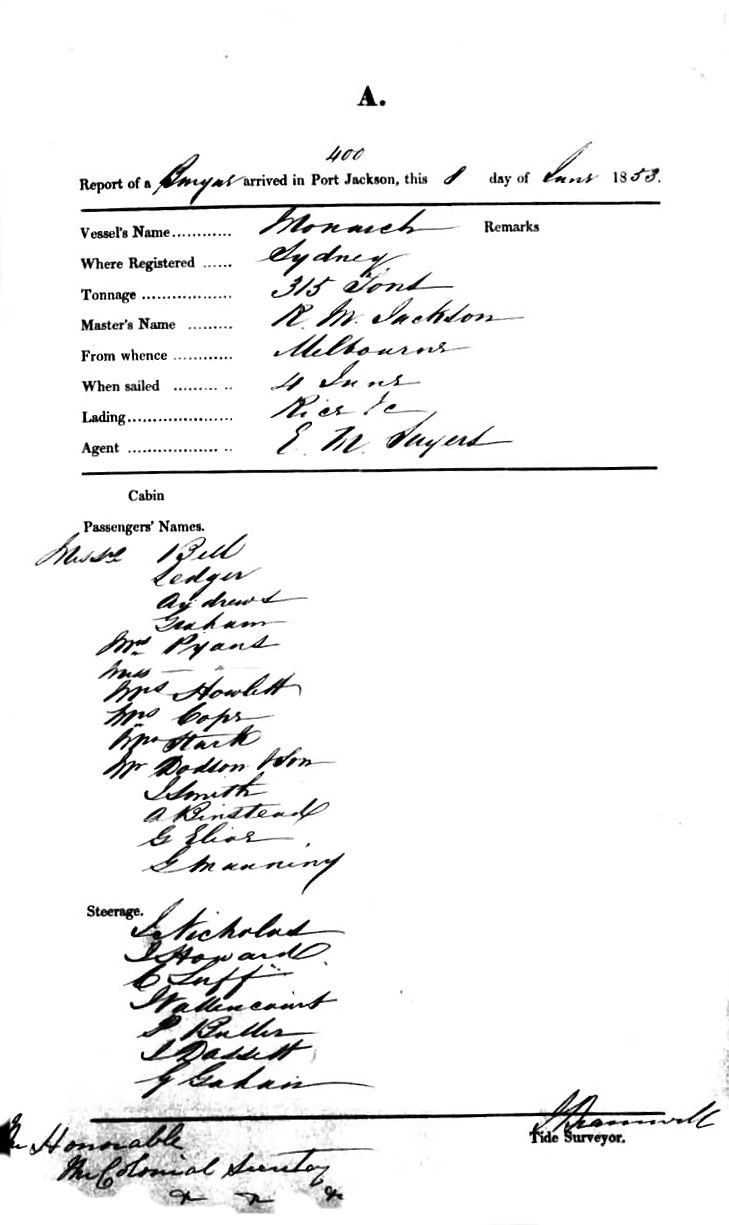 A.
400
Report of a Barque arrived in Port Jackson, this 8 day of June 1853.
Vessel's Name............ Monarch Remarks
Where Registered ...... Sydney
Tonnage .................. 315 Tons
Master's Name ......... R. M. Jackson
From whence ............ Melbourne
When sailed ......... .. 4 June
Lading..................... Rice &c
Agent .................. .. E. M. Sayers
Cabin
Passengers' Names.
Messrs Bell
Ledger
Andrews
Graham
Mrs Pyans
Miss — "
Mrs Howlett
Mrs Cope
Mrs Stark
Mr Dodson & Son
J Smith
A Binstead
G Elias
G Manning
Steerage.
J Nicholas
J Howard
C Luff
J Vallencourt
P Butler
J Dassett
G Gahan
J Bramwell
Tide Surveyor.
The Honorable
The Colonial Secretary